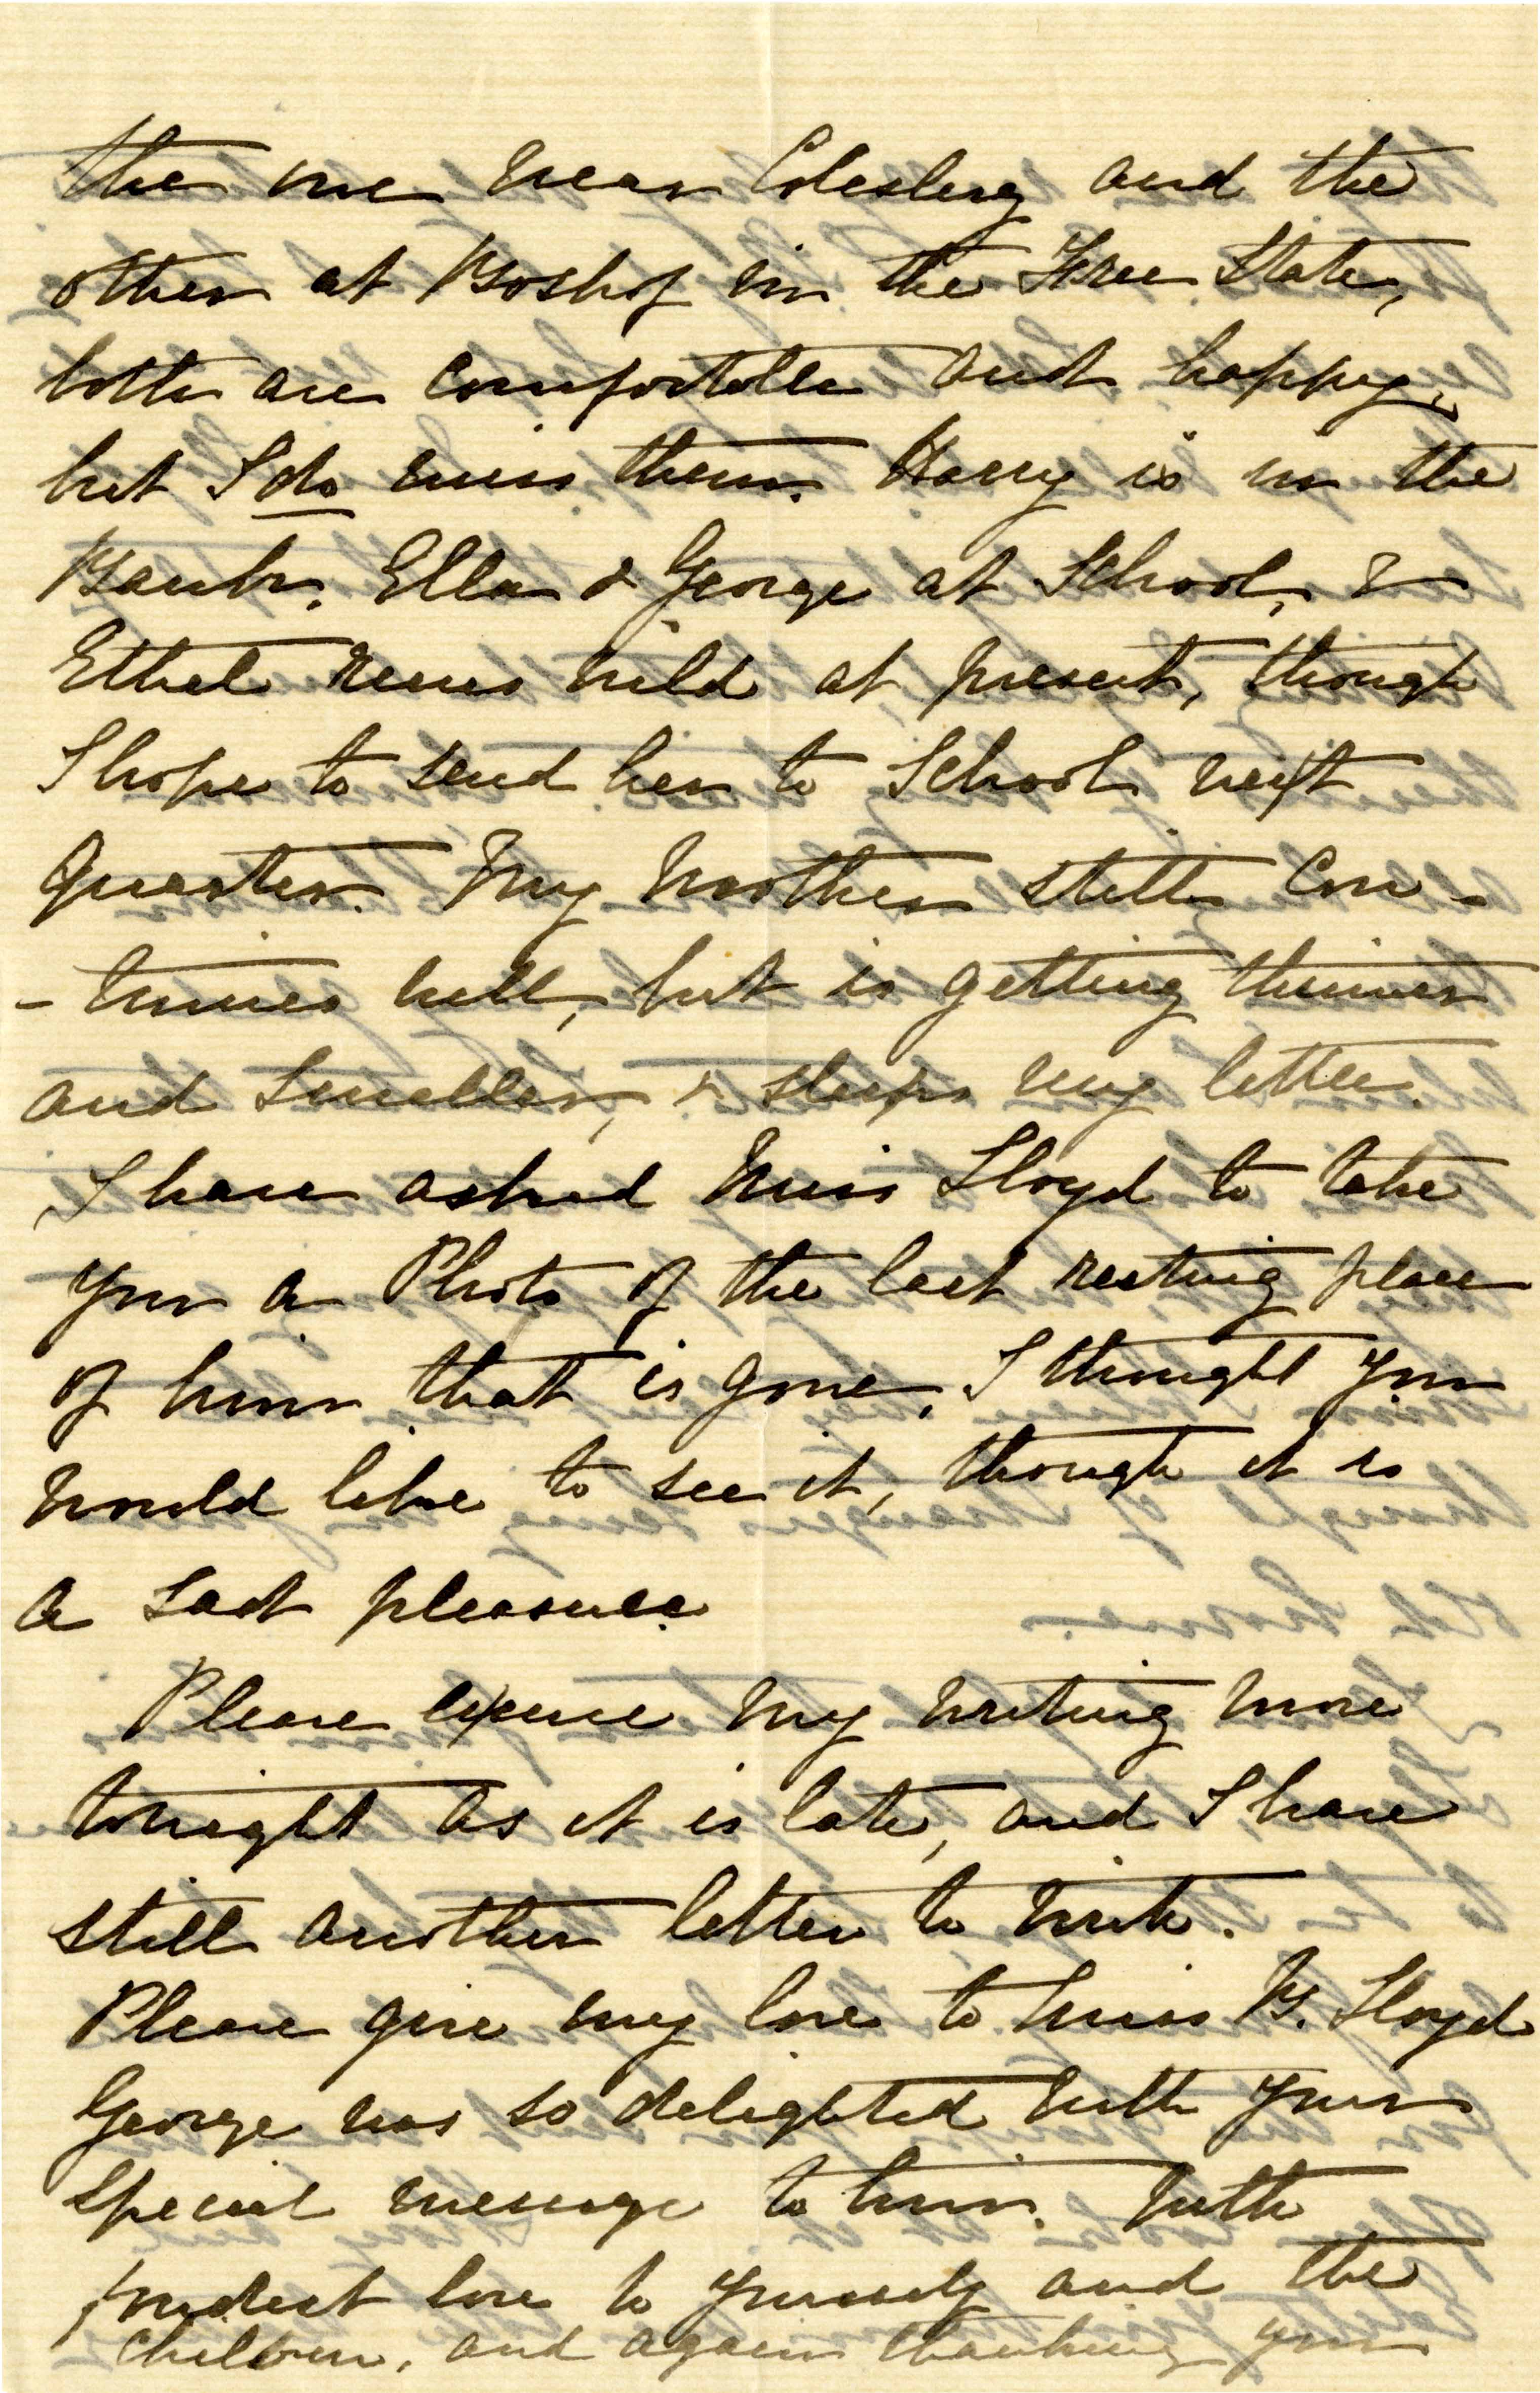 the one near Colesberg and the
other at Boshof in the Free State,
both are comfortable and happy,
but I do miss them. Harry is in the
Bank, Ella & George at School, &
Ethel runs wild at present, though
I hope to send her to School next
Quarter. My Mother still con-
-tinues well, but is getting thinner
and smaller, & sleeps very little.
I have asked Miss Lloyd to take
you a Photo of the last resting place
of him that is gone, I thought you
would like to see it, though it is
a sad pleasure.
Please excuse my writing more
tonight as it is late, and I have
still another letter to write.
Please give my love to Miss B. Lloyd
George was so delighted with your
special message to him. With
fondest love to yourself and the
children, and again thanking you